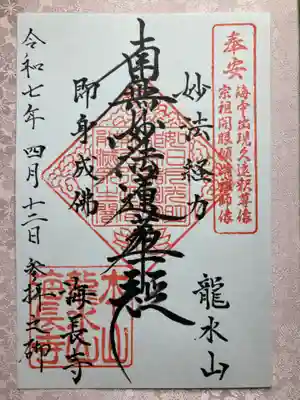 奉安
海中出現久遠釈尊像
宗祖開眼願満祖師像
妙法経力
龍水山
南無妙法蓮華経
即身成佛
海長寺
本山
龍水山
海長寺
令和七年 四月 十二日 参拝之砌